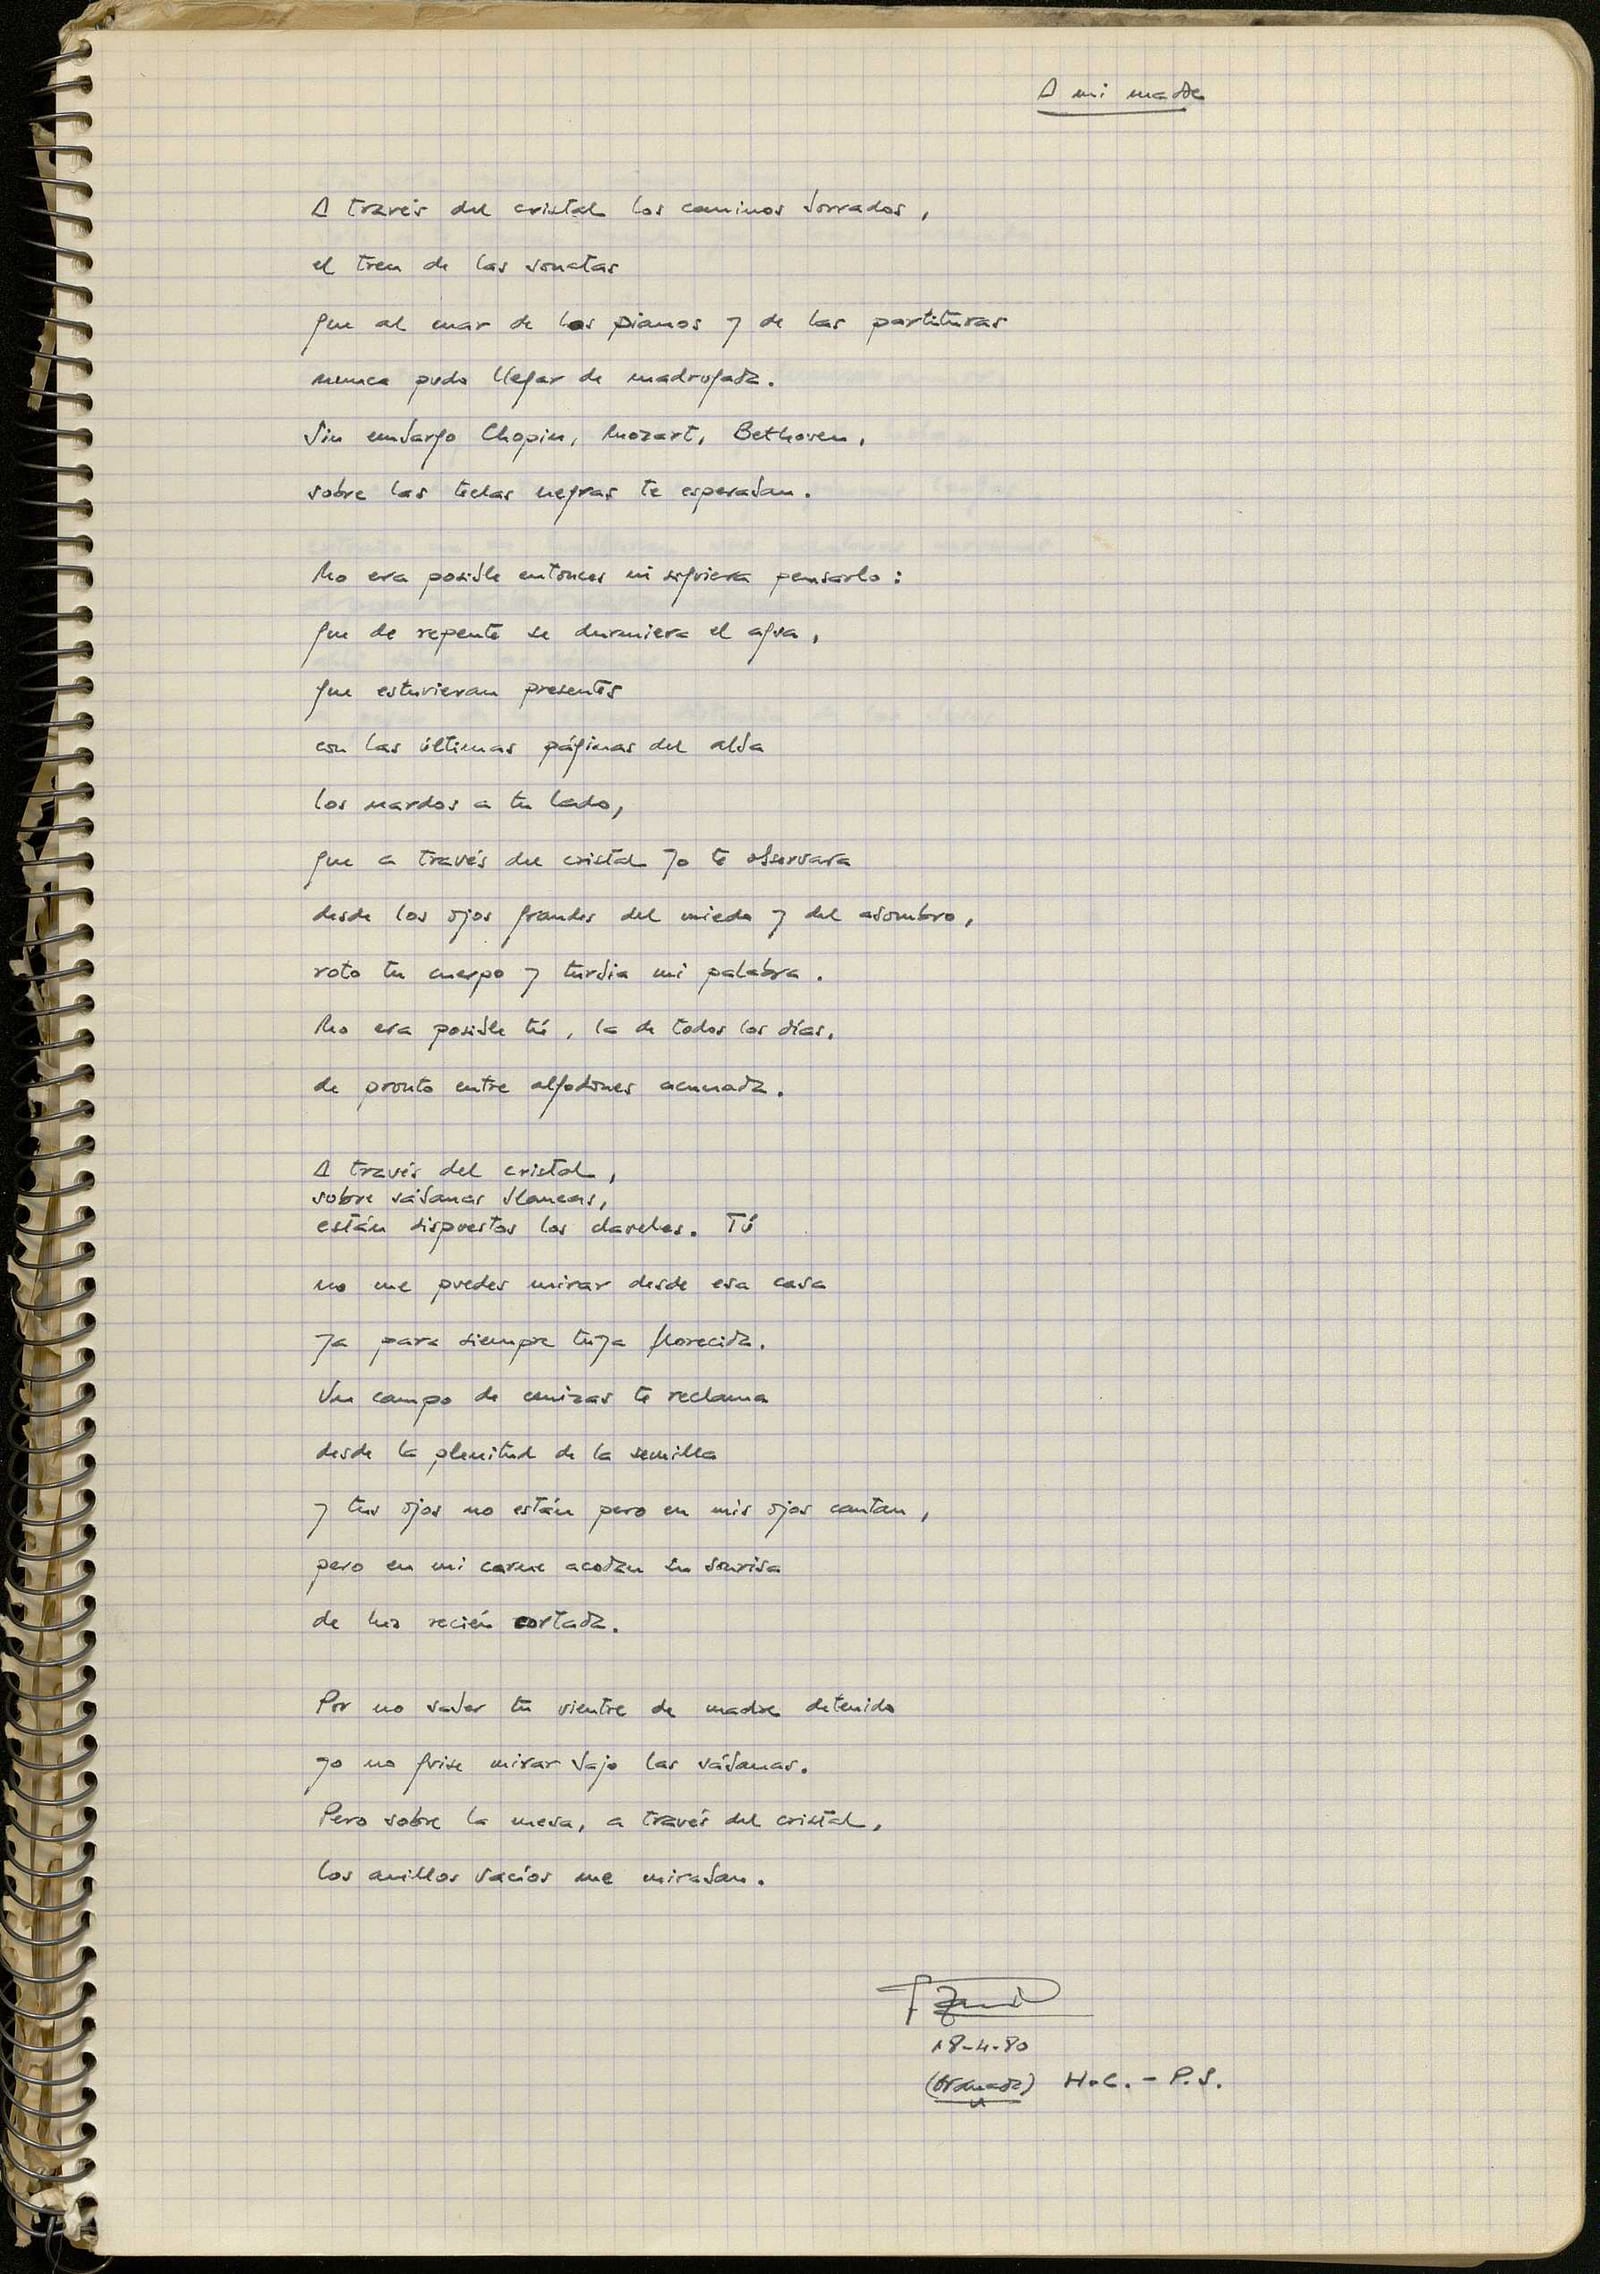 A mi madre
A través del cristal los caminos borrados,
el tren de las sonatas
que al mar de los pianos y de las partituras
nunca pudo llegar de madrugada.
Sin embargo Chopin, Mozart, Bethoven,
sobre las teclas negras te esperaban.
No era posible entonces ni siquiera pensarlo:
que de repente se durmiera el agua,
que estuvieran presentes
con las últimas páginas del alba
los nardos a tu lado,
que a través del cristal yo te observara
desde los ojos grandes del miedo y del asombro,
roto tu cuerpo y turbia mi palabra.
No era posible tú, la de todos los días,
de pronto entre algodones acunada.
A través del cristal,
sobre sábanas blancas,
están dispuestos los claveles. Tú
no me puedes mirar desde esa casa
ya para siempre tuya florecida.
Un campo de cenizas te reclama
desde la plenitud de la semilla
y tus ojos no están pero en mis ojos cantan,
pero en mi carne acodan su sonrisa
de luz recién cortada.
Por no saber tu vientre de madre detenido
yo no quise mirar bajo las sábanas.
Pero sobre la mesa, a través del cristal,
los anillos vacíos me miraban.
18-4-80
(Granada) H.C. - P.S.